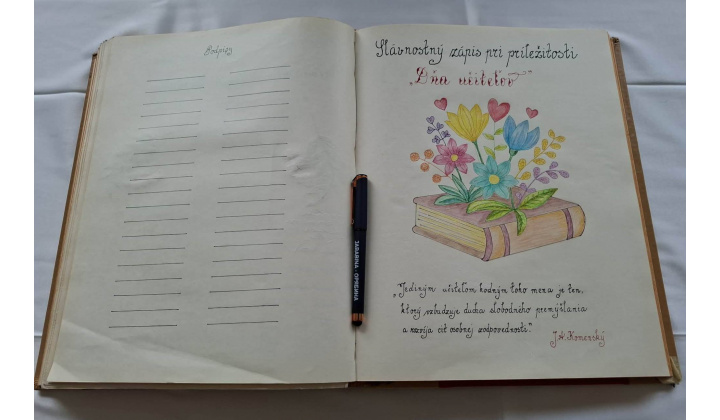 Podpisy
Slávnostný zápis pri príležitosti
„Dňa učiteľov"
„Jediným učiteľom hodným toho mena je ten,
ktorý vzbudzuje ducha slobodného premýšľania
a rozvíja cit osobnej zodpovednosti."
J.A.Komenský
JABABINA - OPRENNA